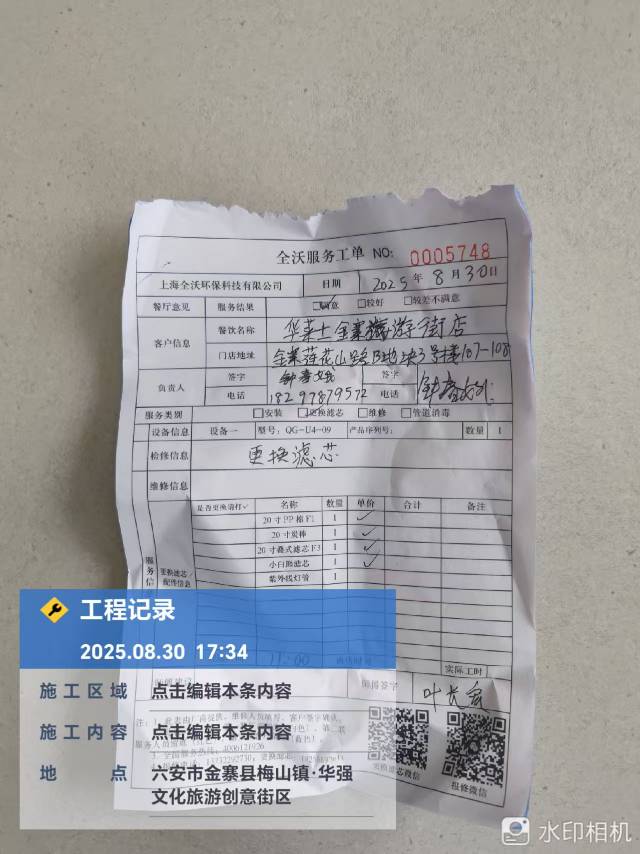 全沃服务工单 NO: 0005748
上海全沃环保科技有限公司 日期 2025年8月30日
餐厅意见 服务结果 □满意 □较好 □较差不满意
客户信息 餐饮名称 华莱士金寨旅游街店
门店地址 金寨莲花山路B地块3号楼107-108
负责人 签字 签字
电话 18297879572 电话
服务类别 □安装 □更换滤芯 □维修 □管道消毒
设备信息 设备一 型号: QG-U4-09 产品序列号: 数量 1
检修信息 更换滤芯
维修信息
服务信 更换滤芯/配件信息
是否更换请打√ 名称 数量 单价 合计 备注
20寸PP棉F1 1 ✓
20寸炭棒 1 ✓
20寸叠式滤芯F3 1 ✓
小白胆滤芯 1 ✓
紫外线灯管 1
实际工时
师傅签字
服务热线: 4006121926
更换滤芯微信 报修微信
工程记录
2025.08.30 17:34
施工区域 点击编辑本条内容
施工内容 点击编辑本条内容
地点 六安市金寨县梅山镇·华强
文化旅游创意街区
水印相机